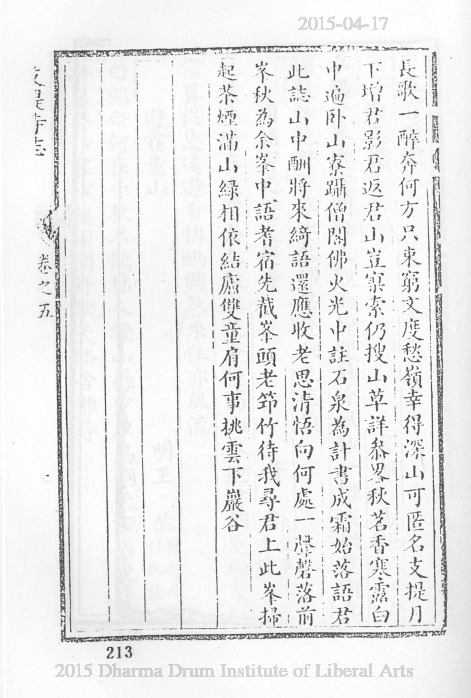 2015-04-17
長歌一醉奔何方只東窮文度愁嶺幸得深山可匿名支提月
下增君影君返君山豈寂索仍搜山草詳叅畧秋茗香寒露白
中遍卧山寮躡僧閣佛火光中註石泉為計書成霜始落語君
此誌山中酬將來綺語還應收老思清悟向何處一聲磬落前
峯秋為余峯中語耆宿先截峯頭老筇竹待我尋君上此峯掃
起茶煙滿山綠相依結廬雙童肩何事挑雲下巖谷
寺志
卷之五
213
2015 Dharma Drum Institute of Liberal Arts